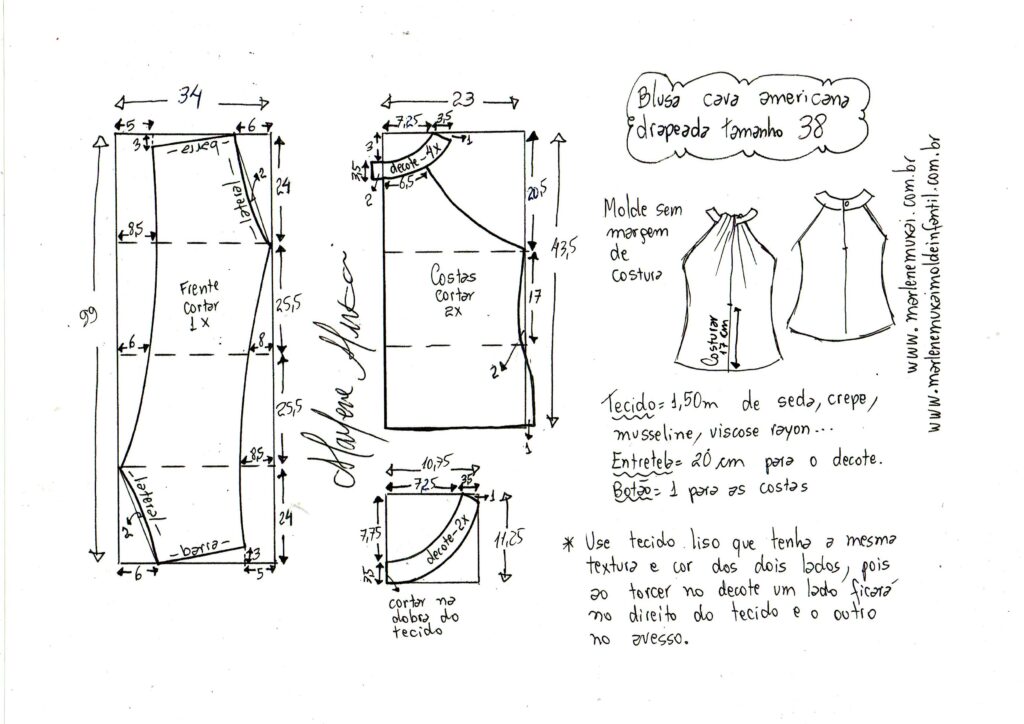 34
5
6
3
barra
lateral
2
24
8,5
Frente
cortar
1x
25,5
99
6
8
25,5
8,5
lateral
2
24
barra
3
6
5
Marlene Mukai
23
7,25
3,5
1
3
3,5
decote-4x
6,5
2
20,5
43,5
Costas
cortar
2x
17
2
1
10,75
7,25
3,5
1
7,75
decote-2x
11,25
3,5
cortar na
dobra do
tecido
Blusa cava americana
drapeada tamanho 38
Molde sem
margem
de
costura
Costurar
17 cm
www.marlenemukai.com.br
www.marlenemukaimoldeinfantil.com.br
Tecido=1,50m de seda, crepe,
musseline, viscose rayon...
Entretela= 20 cm para o decote.
Botão= 1 para as costas
* Use tecido liso que tenha a mesma
textura e cor dos dois lados, pois
ao torcer no decote um lado ficará
no direito do tecido e o outro
no avesso.